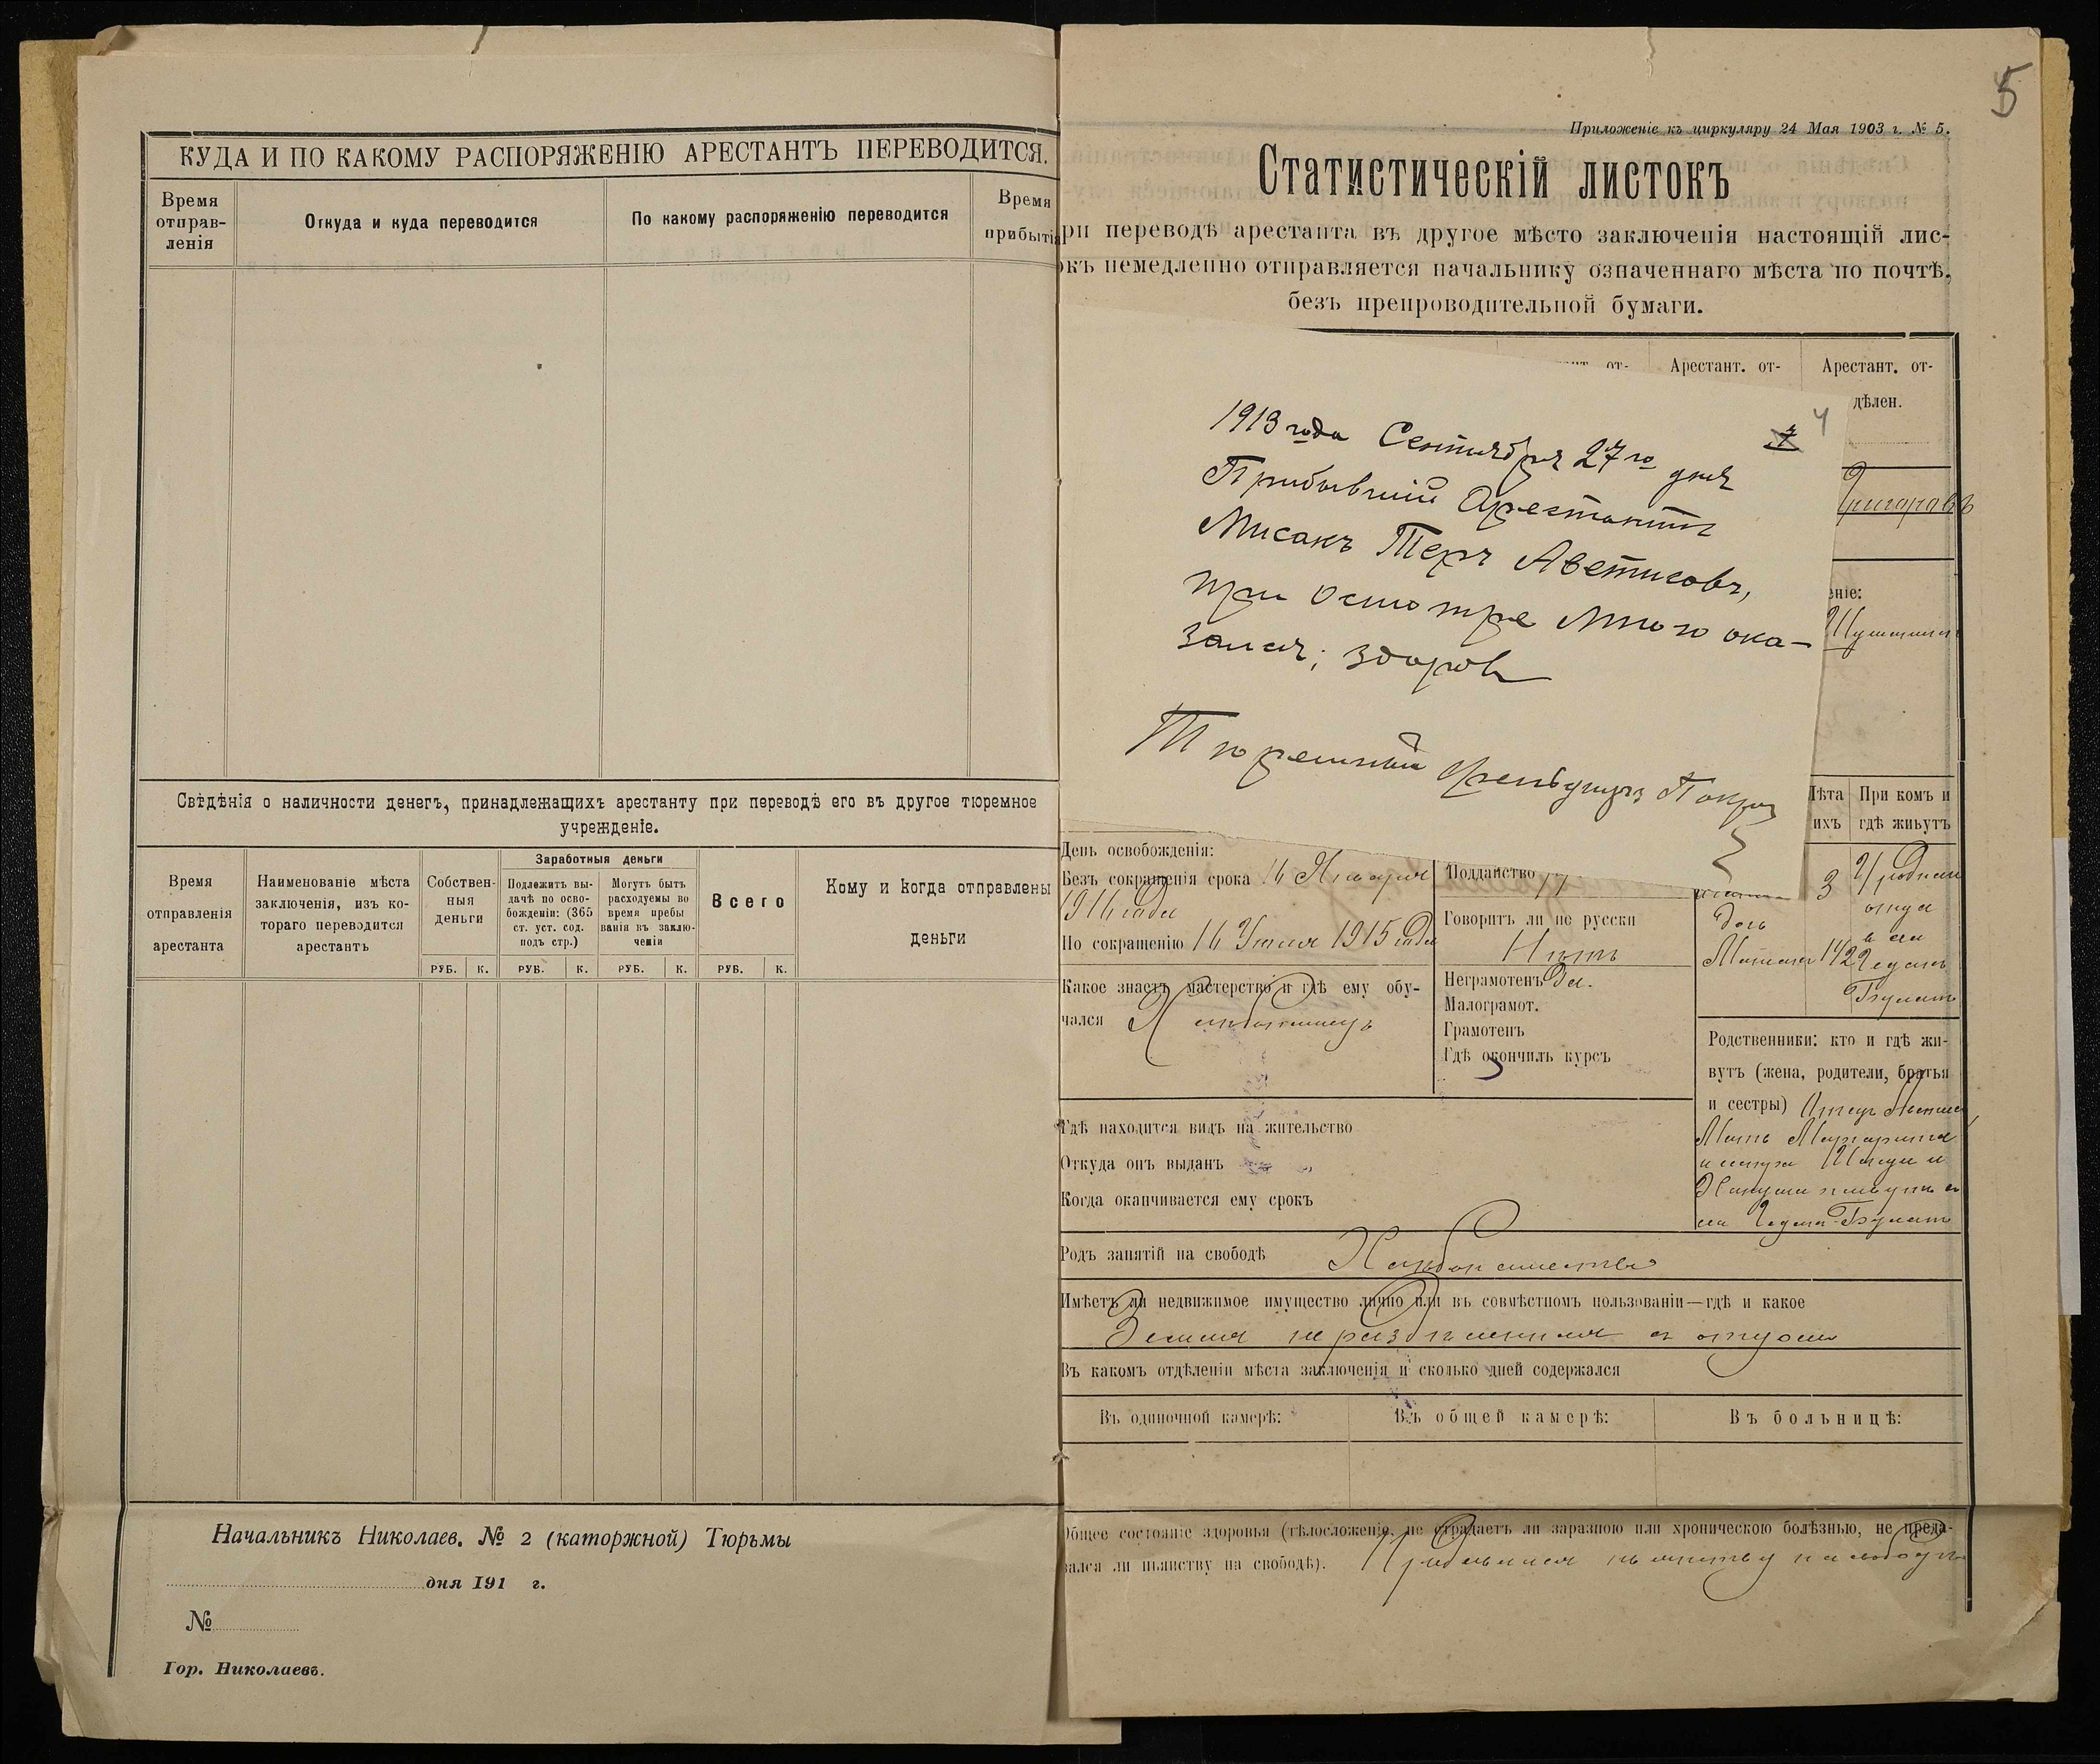 КУДА И ПО КАКОМУ РАСПОРЯЖЕНІЮ АРЕСТАНТЪ ПЕРЕВОДИТСЯ.
Время
отправ-
ленія
Откуда и куда переводится
По какому распоряженію переводится
Время
прибытія
Свѣдѣнія о наличности денегъ, принадлежащихъ арестанту при переводѣ его въ другое тюремное
учрежденіе.
Время
отправленія
арестанта
Наименованіе мѣста
заключенія, изъ ко-
тораго переводится
арестантъ
Собствен-
ныя
деньги
Заработныя деньги
Подлежить вы-
дачѣ по осво-
божденіи: (365
ст. уст. сод.
подъ стр.)
Могутъ быть
расходуемы во
время пребы
ванія въ заклю-
ченіи
Всего
Кому и когда отправлены
деньги
РУБ. К. РУБ. К. РУБ. К. РУБ. К.
Начальникъ Николаев. № 2 (каторжной) Тюрьмы
дня 191 г.
№
Гор. Николаевъ.
5
Приложеніе къ циркуляру 24 Мая 1903 г. № 5.
Статистическій листокъ
ри переводѣ арестанта въ другое мѣсто заключенія настоящій лис-
окъ немедленно отправляется начальнику означеннаго мѣста по почтѣ,
безъ препроводительной бумаги.
от-
Арестант. от-
Арестант. от-
дѣлен.
4
1913 года Сентября 27го дня
Прибывшій Арестантъ
Мисакъ Теръ Аветисовъ,
при осмотре мною ока-
зался; здоровъ
Тюремный Фельдшеръ
еніе:
Лѣта
ихъ
При комъ и
гдѣ живутъ
День освобожденія:
Безъ сокращенія срока 16 Января
1916 года
По сокращенію 16 Іюля 1915 года
Какое знаетъ мастерство и гдѣ ему обу-
чался Хлебопашецъ
Подданство
Говоритъ ли по русски
Нѣтъ
Неграмотенъ Да.
Малограмот.
Грамотенъ
Гдѣ окончилъ курсъ
3
дочь
1 1/2
Родственники: кто и гдѣ жи-
вутъ (жена, родители, братья
и сестры) Отецъ
Мать Маргарита
Гдѣ находится видъ на жительство
Откуда онъ выданъ
Когда оканчивается ему срокъ
Родъ занятій на свободѣ Хлебопашество
Имѣетъ ли недвижимое имущество лично или въ совмѣстномъ пользованіи—гдѣ и какое
Земля не раздѣленная съ отцомъ
Въ какомъ отдѣленіи мѣста заключенія и сколько дней содержался
Въ одиночной камерѣ:
Въ общей камерѣ:
Въ больницѣ:
Общее состояніе здоровья (тѣлосложеніе, не страдаетъ ли заразною или хроническою болѣзнью, не преда-
вался ли пьянству на свободѣ).